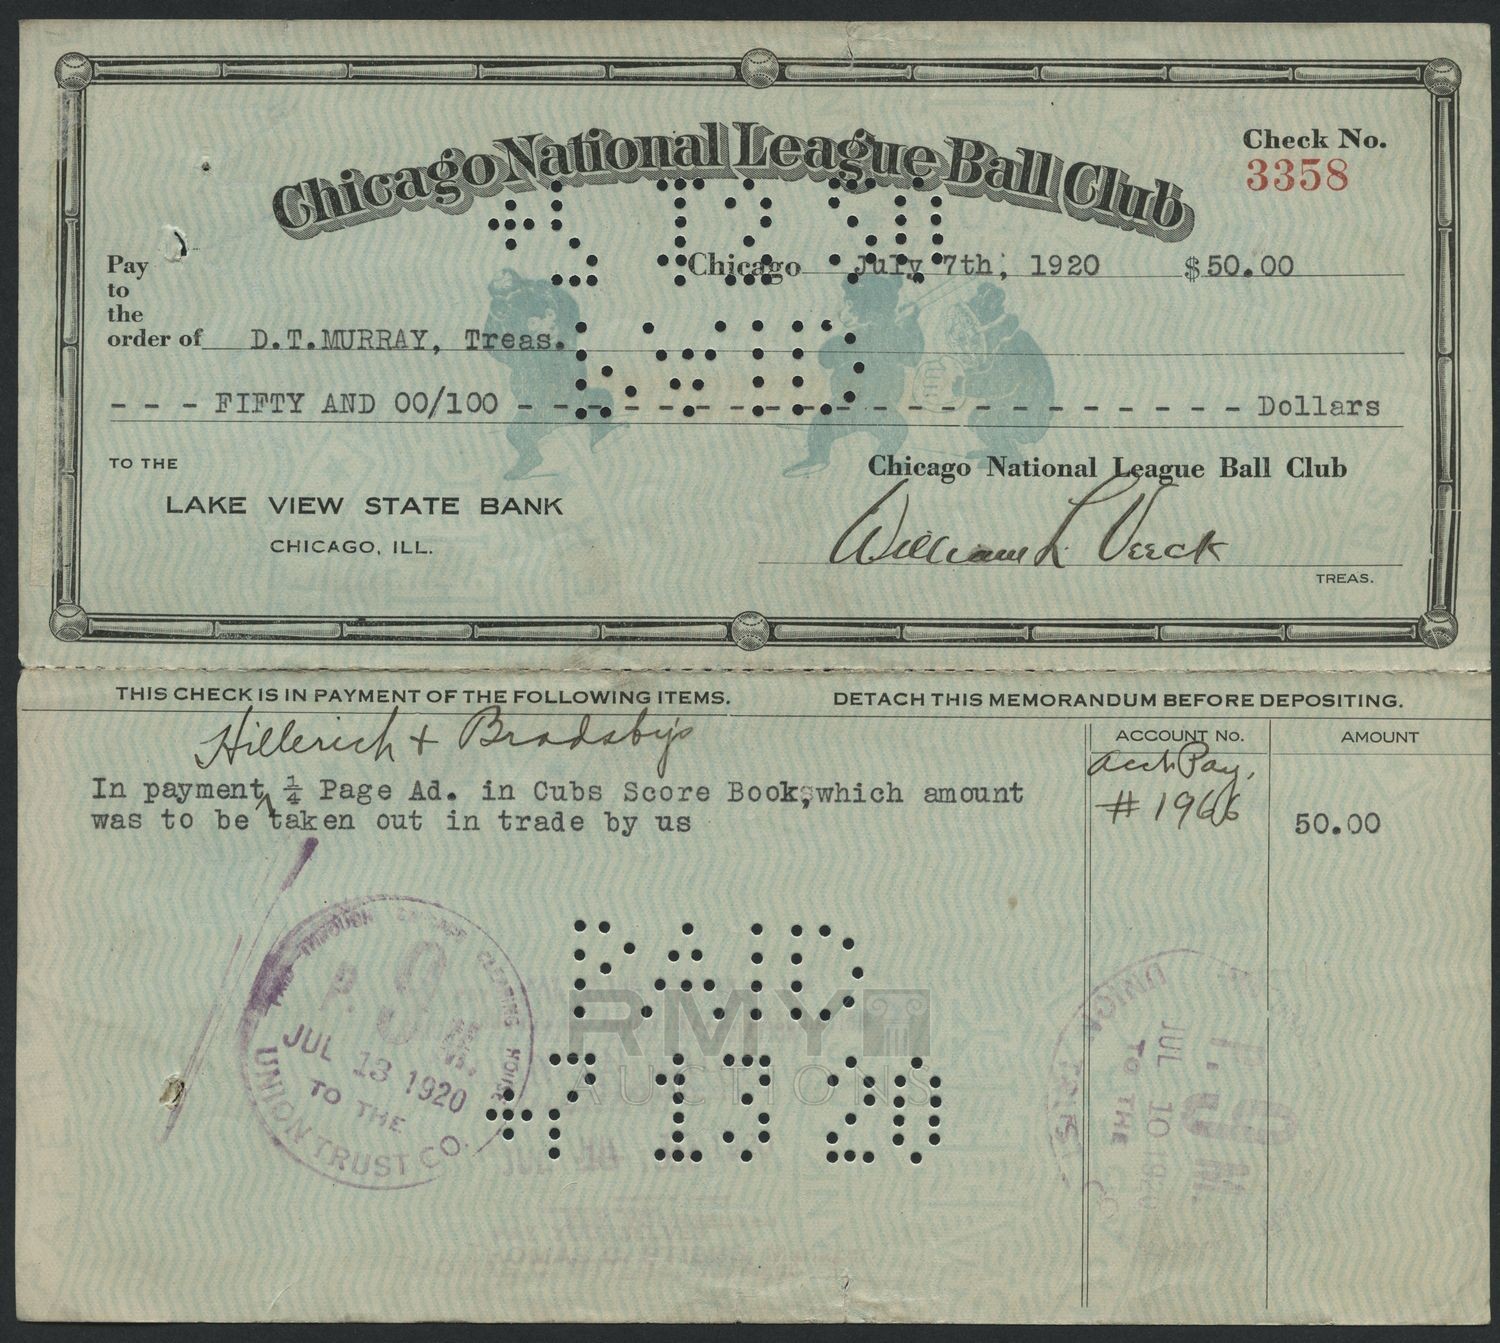 Chicago National League Ball Club
Check No.
3358
Chicago July 7th, 1920 $50.00
Pay
to
the
order of D.T.MURRAY, Treas.
- - - FIFTY AND 00/100 - - - - - - - - - - - - - - - - - - - - - - - Dollars
TO THE
LAKE VIEW STATE BANK
CHICAGO, ILL.
Chicago National League Ball Club
William L. Veeck
TREAS.
THIS CHECK IS IN PAYMENT OF THE FOLLOWING ITEMS. DETACH THIS MEMORANDUM BEFORE DEPOSITING.
ACCOUNT No. AMOUNT
Hillerich + Bradsby's
In payment ¼ Page Ad. in Cubs Score Book, which amount
was to be taken out in trade by us
Acct Pay,
# 1966
50.00
THROUGH CHICAGO CLEARING HOUSE
P. 9 M.
JUL 13 1920
TO THE
UNION TRUST CO.
PAID
+7 13 20
RMY
AUCTIONS
UNION TRUST CO
JUL 10 1920
TO THE
P. 9 M.